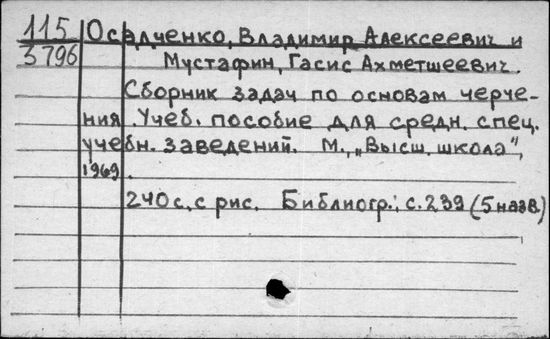 115 Осадченко, Владимир Алексеевич и
3796 Мустафин, Гасис Ахметшеевич.
Сборник задач по основам черче-
ния. Учеб. пособие для средн. спец.
учебн. заведений. М., „Высш. школа",
1969.
240с. с рис. Библиогр.: с.239 (5 назв.)